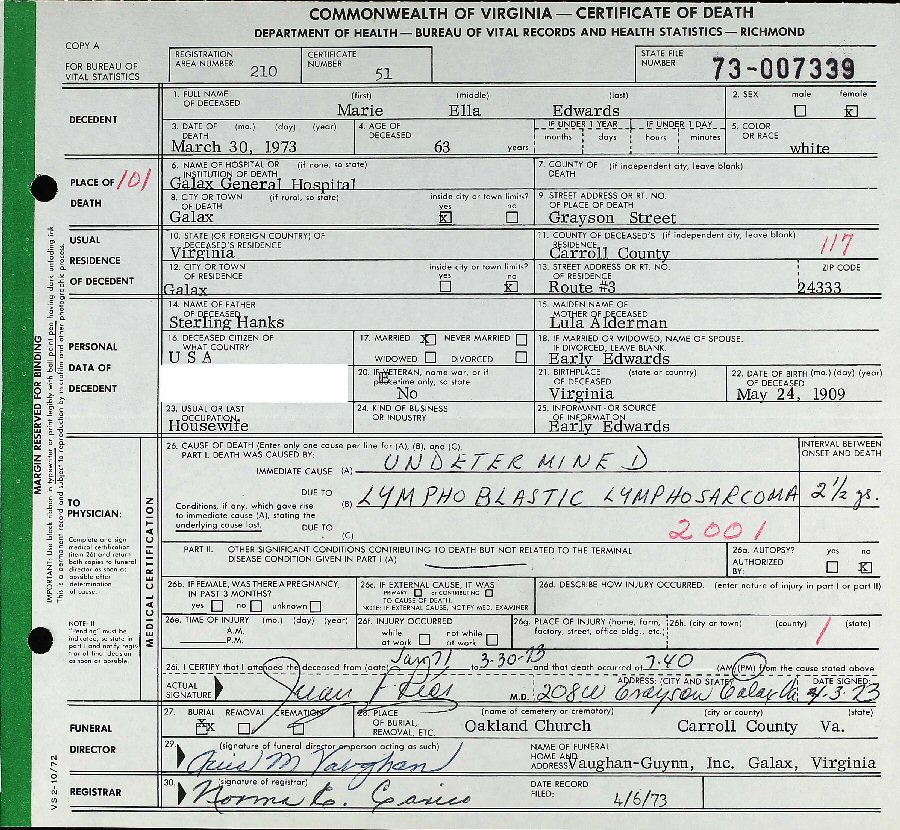 COMMONWEALTH OF VIRGINIA — CERTIFICATE OF DEATH
DEPARTMENT OF HEALTH — BUREAU OF VITAL RECORDS AND HEALTH STATISTICS — RICHMOND
COPY A
FOR BUREAU OF VITAL STATISTICS
REGISTRATION AREA NUMBER 210
CERTIFICATE NUMBER 51
STATE FILE NUMBER 73-007339
DECEDENT
1. FULL NAME OF DECEASED (first) (middle) (last)
Marie Ella Edwards
2. SEX male female
x
3. DATE OF DEATH (mo.) (day) (year)
March 30, 1973
4. AGE OF DECEASED
63 years
IF UNDER 1 YEAR months days
IF UNDER 1 DAY hours minutes
5. COLOR OR RACE
white
PLACE OF DEATH
101
6. NAME OF HOSPITAL OR INSTITUTION OF DEATH (if none, so state)
Galax General Hospital
7. COUNTY OF DEATH (if independent city, leave blank)
8. CITY OR TOWN OF DEATH (if rural, so state)
Galax
inside city or town limits? yes no
x
9. STREET ADDRESS OR RT. NO. OF PLACE OF DEATH
Grayson Street
USUAL RESIDENCE OF DECEDENT
10. STATE (OR FOREIGN COUNTRY) OF DECEASED'S RESIDENCE
Virginia
11. COUNTY OF DECEASED'S RESIDENCE (if independent city, leave blank)
Carroll County
117
12. CITY OR TOWN OF RESIDENCE
Galax
inside city or town limits? yes no
x
13. STREET ADDRESS OR RT. NO. OF RESIDENCE
Route #3
ZIP CODE
24333
PERSONAL DATA OF DECEDENT
14. NAME OF FATHER OF DECEASED
Sterling Hanks
15. MAIDEN NAME OF MOTHER OF DECEASED
Lula Alderman
16. DECEASED CITIZEN OF WHAT COUNTRY
U S A
17. MARRIED X NEVER MARRIED
WIDOWED DIVORCED
18. IF MARRIED OR WIDOWED, NAME OF SPOUSE. IF DIVORCED, LEAVE BLANK.
Early Edwards
20. IF VETERAN, name war, or if peacetime only, so state
No
21. BIRTHPLACE OF DECEASED (state or country)
Virginia
22. DATE OF BIRTH (mo.) (day) (year) OF DECEASED
May 24, 1909
23. USUAL OR LAST OCCUPATION
Housewife
24. KIND OF BUSINESS OR INDUSTRY
25. INFORMANT - OR SOURCE OF INFORMATION
Early Edwards
MARGIN RESERVED FOR BINDING
IMPORTANT: Use black ribbon in typewriter or print legibly with ball point pen having dark, unfading ink.
This is a permanent record and subject to reproduction by microfilm and other photographic process.
VS 2-10/72
TO PHYSICIAN:
Complete and sign medical certification (item 26) and return both copies to funeral director as soon as possible after determination of cause.
NOTE: If "Pending" must be indicated, so state in part I and notify registrar of final decision as soon as possible.
MEDICAL CERTIFICATION
26. CAUSE OF DEATH (Enter only one cause per line for (A), (B), and (C).
PART I. DEATH WAS CAUSED BY:
INTERVAL BETWEEN ONSET AND DEATH
IMMEDIATE CAUSE (A) UNDETERMINED
Conditions, if any, which gave rise to immediate cause (A), stating the underlying cause last.
DUE TO (B) LYMPHOBLASTIC LYMPHOSARCOMA 2 1/2 ys.
DUE TO (C)
2001
PART II. OTHER SIGNIFICANT CONDITIONS CONTRIBUTING TO DEATH BUT NOT RELATED TO THE TERMINAL DISEASE CONDITION GIVEN IN PART I (A)
26a. AUTOPSY? yes no
AUTHORIZED BY: x
26b. IF FEMALE, WAS THERE A PREGNANCY IN PAST 3 MONTHS?
yes no unknown
26c. IF EXTERNAL CAUSE, IT WAS
PRIMARY or CONTRIBUTING
TO CAUSE OF DEATH.
NOTE: IF EXTERNAL CAUSE, NOTIFY MED. EXAMINER
26d. DESCRIBE HOW INJURY OCCURRED. (enter nature of injury in part I or part II)
26e. TIME OF INJURY (mo.) (day) (year)
A.M.
P.M.
26f. INJURY OCCURRED
while at work not while at work
26g. PLACE OF INJURY (home, farm, factory, street, office bldg., etc.)
26h. (city or town) (county) (state)
1
26i. I CERTIFY that I attended the deceased from (date) Jan 71 to 3-30-73 and that death occurred at 7.40 (AM) (PM) from the cause stated above
ACTUAL SIGNATURE Juan Rios M.D.
ADDRESS: (CITY AND STATE)
208 W Grayson Galax Va
DATE SIGNED:
4.3.73
FUNERAL DIRECTOR
27. BURIAL REMOVAL CREMATION
28. PLACE OF BURIAL, REMOVAL, ETC.
(name of cemetery or crematory) (city or county) (state)
Oakland Church Carroll County Va.
29. (signature of funeral director or person acting as such)
M Vaughan
NAME OF FUNERAL HOME AND ADDRESS
Vaughan-Guynn, Inc. Galax, Virginia
REGISTRAR
30. (signature of registrar)
Norma
DATE RECORD FILED:
4/6/73